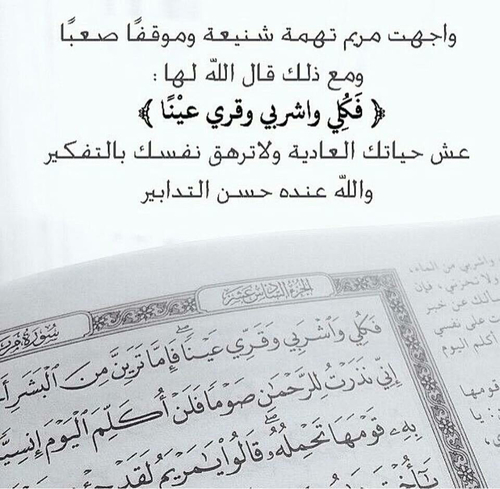 واجهت مريم تهمة شنيعة وموقفًا صعبًا
ومع ذلك قال الله لها :
﴿ فَكُلِي واشربي وقري عيْنًا ﴾
عش حياتك العادية ولاترهق نفسك بالتفكير
والله عنده حسن التدابير
الجزء السادس عشر
سورة مر
فَكُلِي وَٱشْرَبِي وَقَرِّي عَيْنًا ۖ فَإِمَّا تَرَيِنَّ مِنَ ٱلْبَشَرِ أَ
إِنِّي نَذَرْتُ لِلرَّحْمَٰنِ صَوْمًا فَلَنْ أُكَلِّمَ ٱلْيَوْمَ إِنسِيًّا
بِهِۦ قَوْمَهَا تَحْمِلُهُۥ ۖ قَالُوا۟ يَٰمَرْيَمُ لَقَدْ
يَٰٓأُخْتَ
واشربي من الماء،
أكلم اليوم